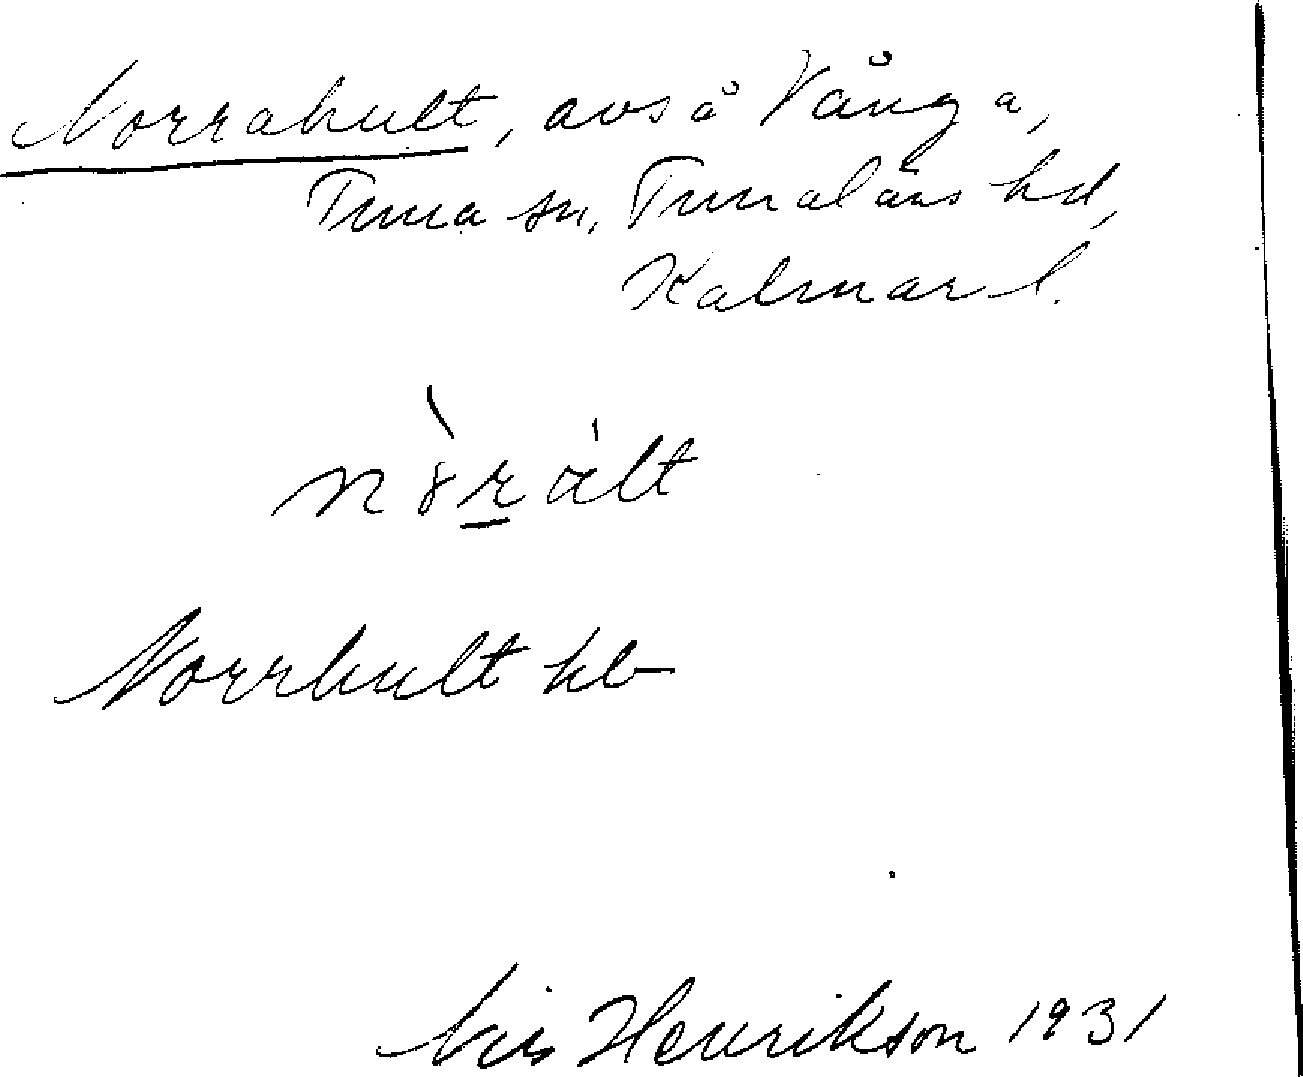 Norrahult, avs å Vånga,
Tuna sn, Tunaläns hd,
Kalmar l.
Norrhult kb
Nils Henrikson 1931